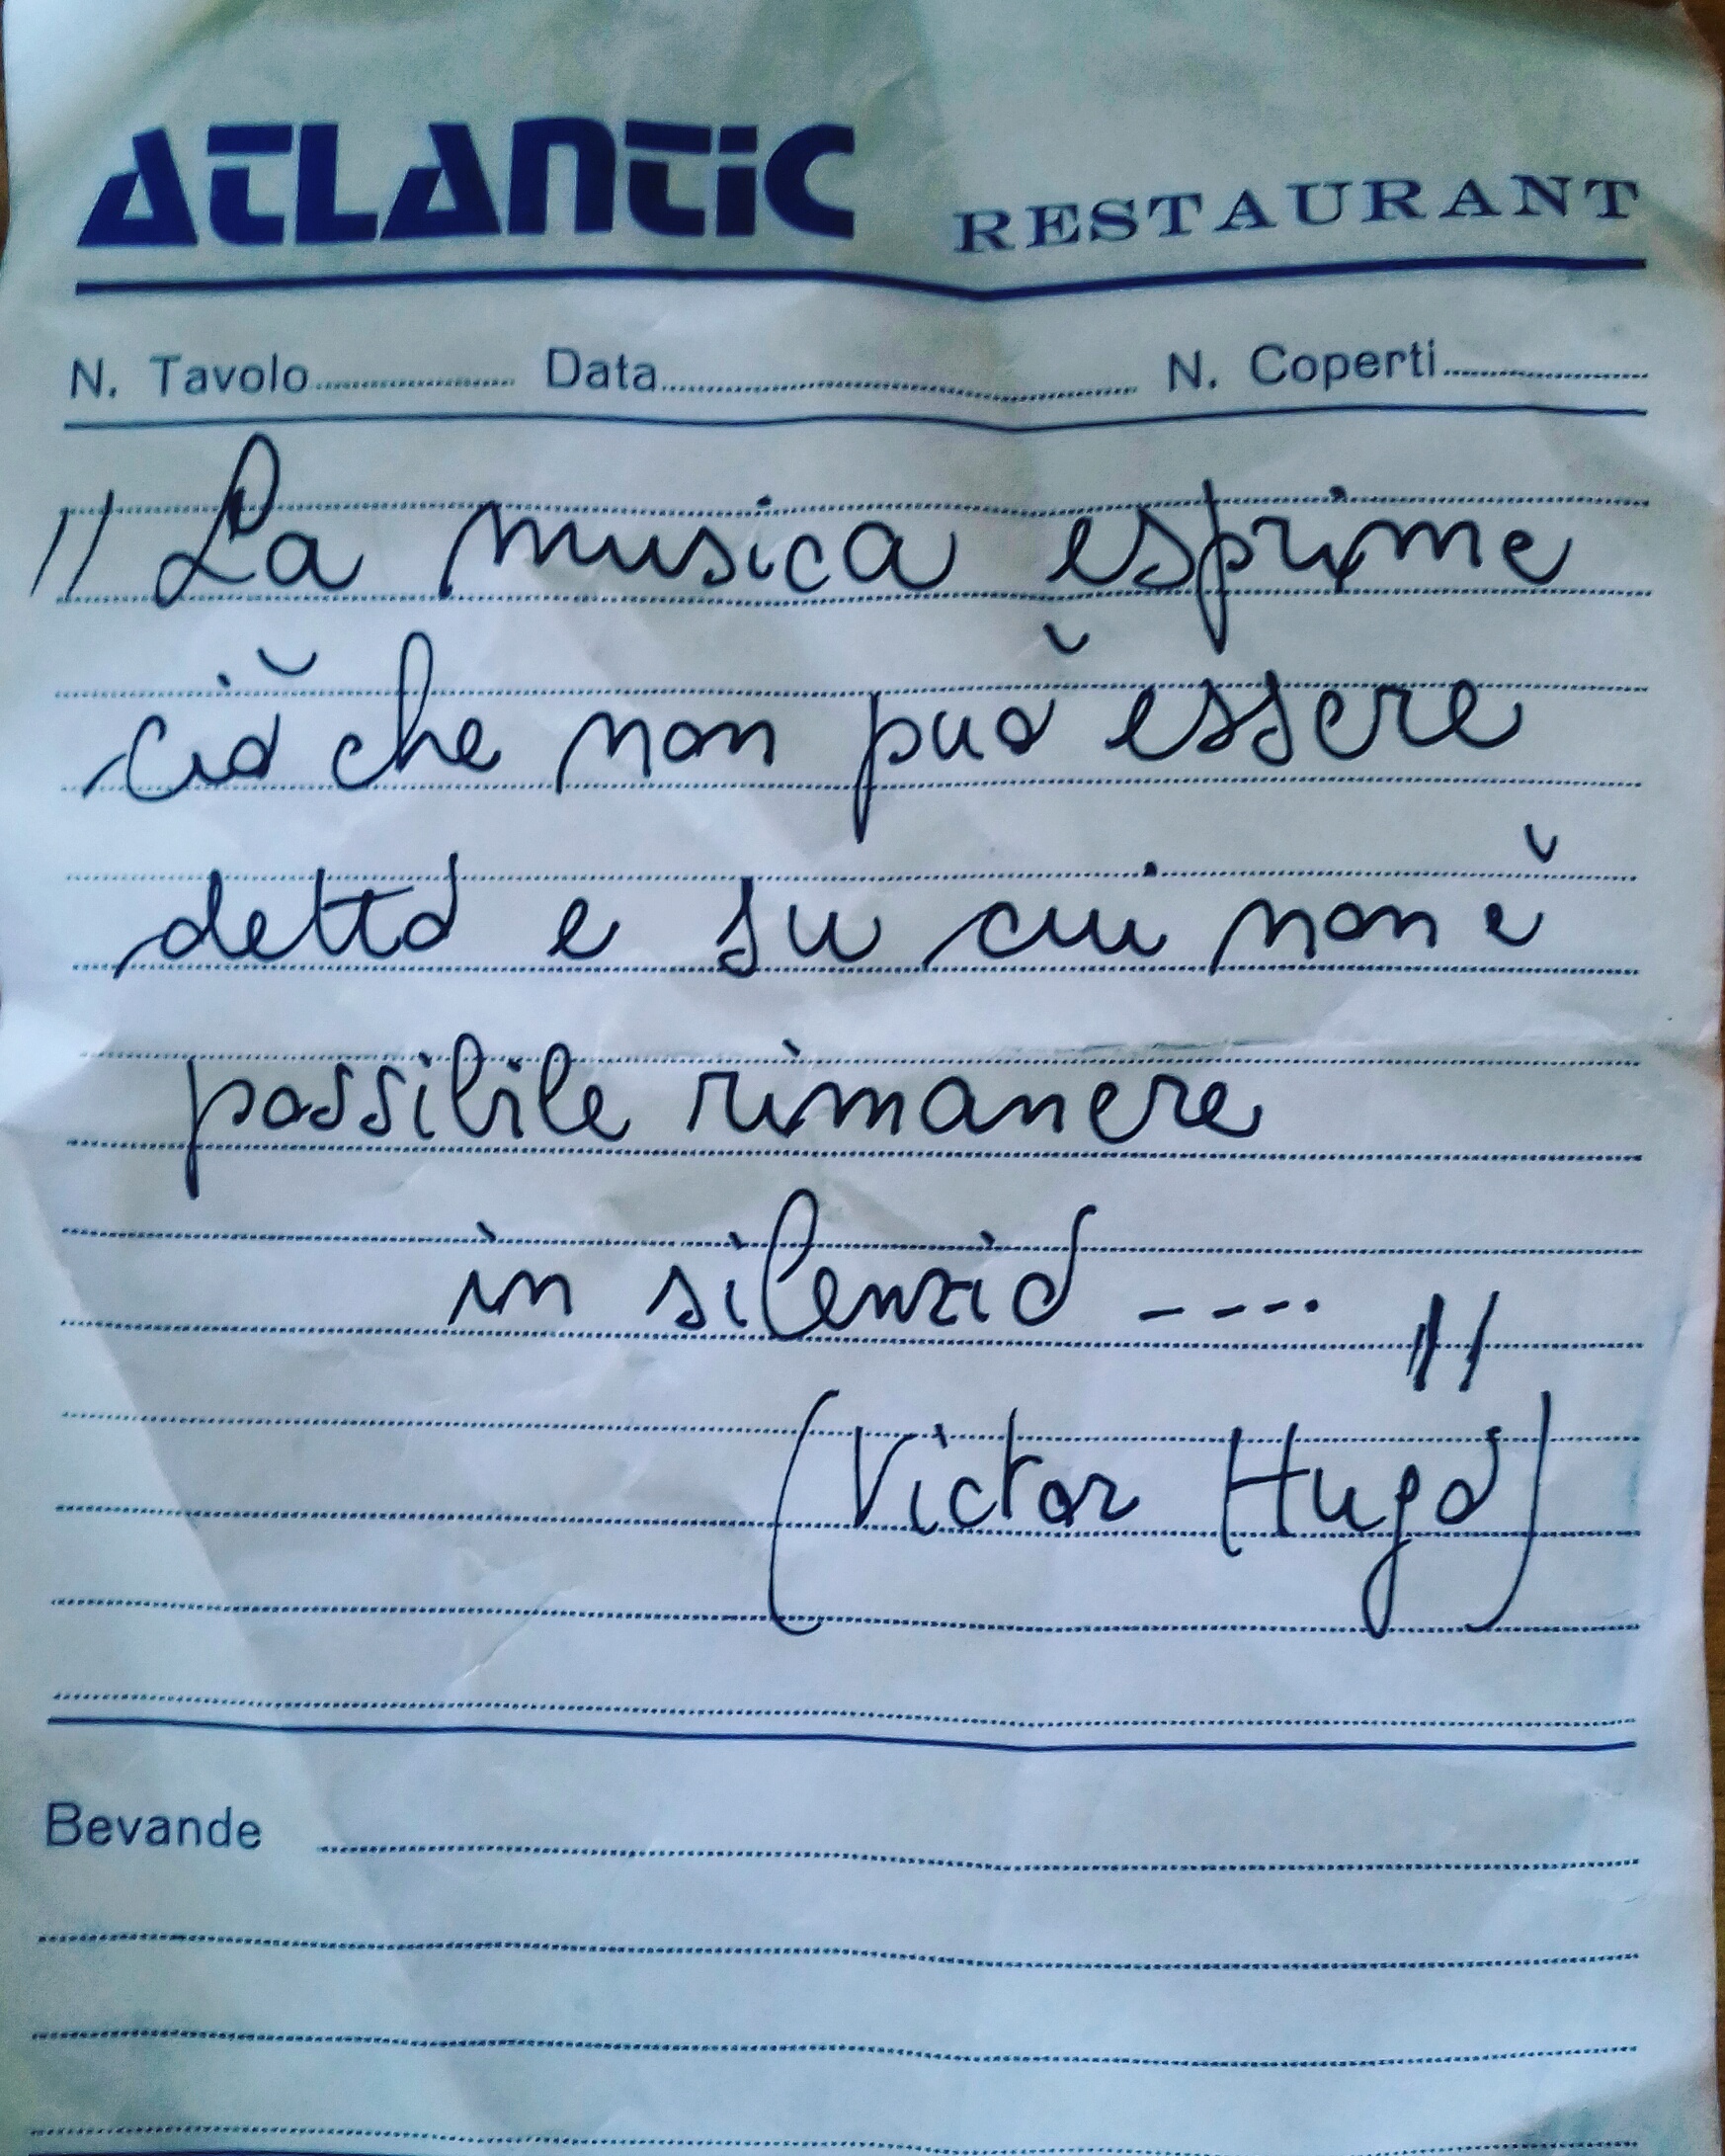 ATLANTIC RESTAURANT
N. Tavolo.......... Data.......... N. Coperti..........
"La musica esprime
ciò che non può essere
detto e su cui non è
possibile rimanere
in silenzio ----."
(Victor Hugo)
Bevande